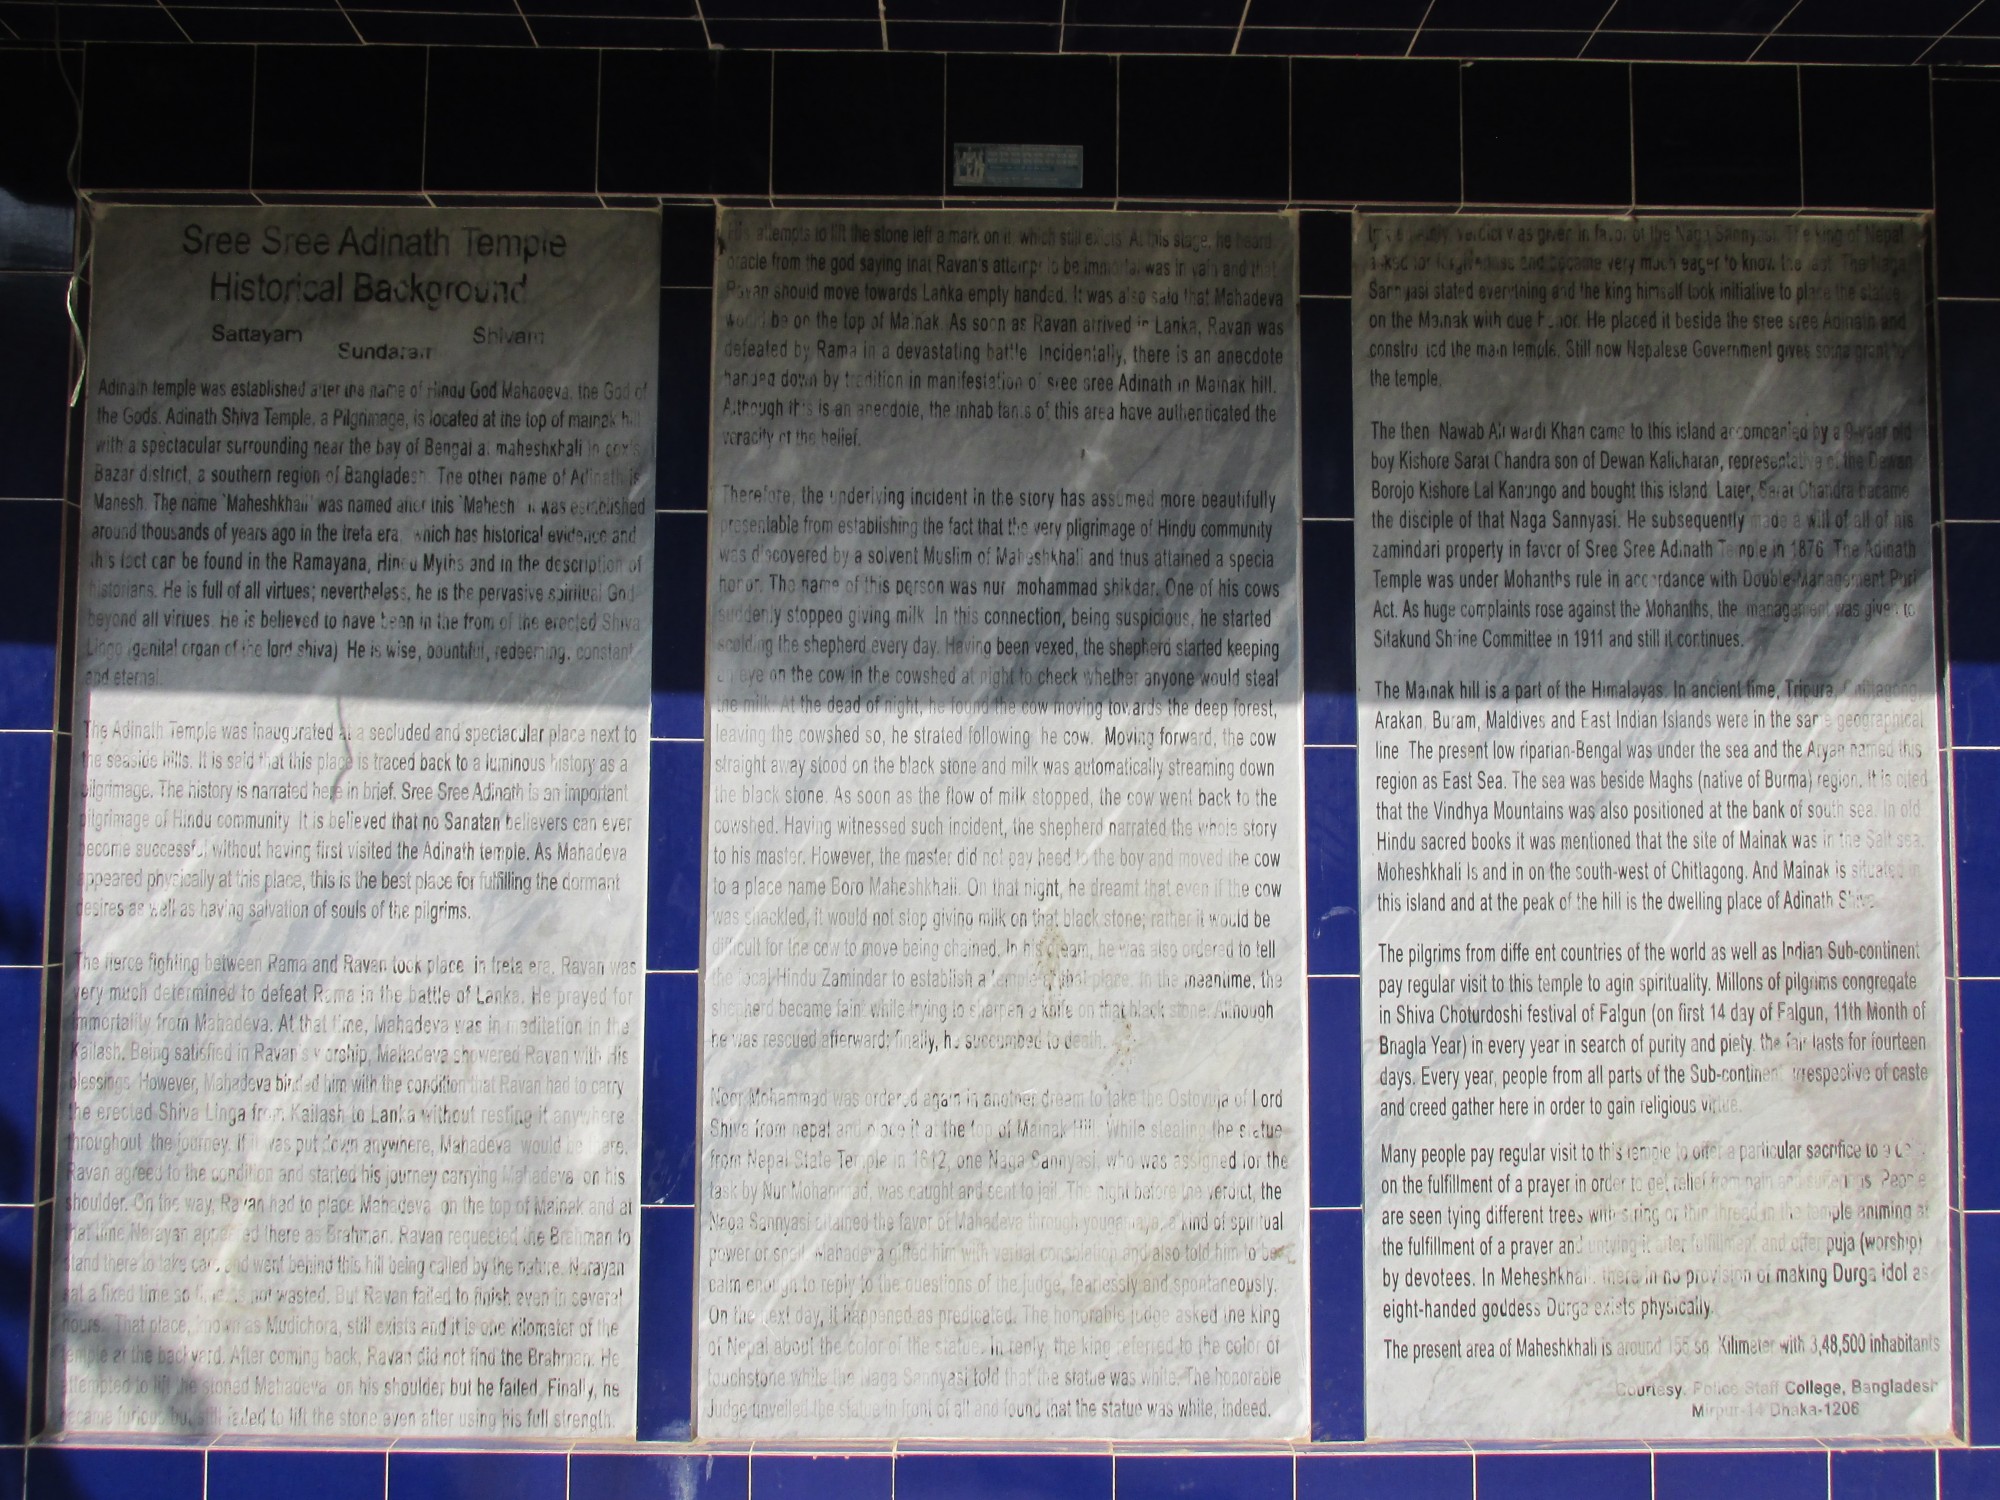 Sree Sree Adinath Temple
Historical Background
Sattayam Shivam
Sundaram
Adinath temple was established after the name of Hindu God Mahadeva, the God of
the Gods. Adinath Shiva Temple, a Pilgrimage, is located at the top of mainak hill
with a spectacular surrounding near the bay of Bengal at maheshkhali in cox's
Bazar district, a southern region of Bangladesh. The other name of Adinath is
Mahesh. The name 'Maheshkhali' was named after this 'Mahesh' it was established
around thousands of years ago in the treta era, which has historical evidence and
this fact can be found in the Ramayana, Hindu Myths and in the description of
historians. He is full of all virtues; nevertheless, he is the pervasive spiritual God
beyond all virtues. He is believed to have been in the from of the erected Shiva
Linga (genital organ of the lord shiva) He is wise, bountiful, redeeming, constant
and eternal.
The Adinath Temple was inaugurated at a secluded and spectacular place next to
the seaside hills. It is said that this place is traced back to a luminous history as a
pilgrimage. The history is narrated here in brief. Sree Sree Adinath is an important
pilgrimage of Hindu community. It is believed that no Sanatan believers can ever
become successful without having first visited the Adinath temple. As Mahadeva
appeared physically at this place, this is the best place for fulfilling the dormant
desires as well as having salvation of souls of the pilgrims.
The fierce fighting between Rama and Ravan took place in treta era. Ravan was
very much determined to defeat Rama in the battle of Lanka. He prayed for
immortality from Mahadeva. At that time, Mahadeva was in meditation in the
Kailash. Being satisfied in Ravan's worship, Mahadeva showered Ravan with His
blessings. However, Mahadeva binded him with the condition that Ravan had to carry
the erected Shiva Linga from Kailash to Lanka without resting it anywhere
throughout the journey. If it was put down anywhere, Mahadeva would be there.
Ravan agreed to the condition and started his journey carrying Mahadeva on his
shoulder. On the way, Ravan had to place Mahadeva on the top of Mainak and at
that time Narayan appeared there as Brahman. Ravan requested the Brahman to
stand there to take care and went behind this hill being called by the nature. Narayan
sat a fixed time so time is not wasted. But Ravan failed to finish even in several
hours. That place, known as Mudichora, still exists and it is one kilometer of the
temple at the backyard. After coming back, Ravan did not find the Brahman. He
attempted to lift the stoned Mahadeva on his shoulder but he failed. Finally, he
became furious but still failed to lift the stone even after using his full strength.
His attempts to lift the stone left a mark on it, which still exists. At this stage, he heard
oracle from the god saying that Ravan's attempt to be immortal was in vain and that
Ravan should move towards Lanka empty handed. It was also said that Mahadeva
would be on the top of Mainak. As soon as Ravan arrived in Lanka, Ravan was
defeated by Rama in a devastating battle. Incidentally, there is an anecdote
handed down by tradition in manifestation of sree sree Adinath in Mainak hill.
Although this is an anecdote, the inhabitants of this area have authenticated the
veracity of the belief.
Therefore, the underlying incident in the story has assumed more beautifully
presentable from establishing the fact that the very pligrimage of Hindu community
was discovered by a solvent Muslim of Maheshkhali and thus attained a specia
honor. The name of this person was nur mohammad shikdar. One of his cows
suddenly stopped giving milk. In this connection, being suspicious, he started
scolding the shepherd every day. Having been vexed, the shepherd started keeping
an eye on the cow in the cowshed at night to check whether anyone would steal
the milk. At the dead of night, he found the cow moving towards the deep forest,
leaving the cowshed so, he strated following he cow. Moving forward, the cow
straight away stood on the black stone and milk was automatically streaming down
the black stone. As soon as the flow of milk stopped, the cow went back to the
cowshed. Having witnessed such incident, the shepherd narrated the whole story
to his master. However, the master did not pay heed to the boy and moved the cow
to a place name Boro Maheshkhali. On that night, he dreamt that even if the cow
was shackled, it would not stop giving milk on that black stone; rather it would be
difficult for the cow to move being chained. In his dream, he was also ordered to tell
the local Hindu Zamindar to establish a temple at that place. In the meantime, the
shepherd became faint while trying to sharpen a knife on that black stone. Although
he was rescued afterward; finally, he succumbed to death.
Noor Mohammad was ordered again in another dream to take the Ostovuja of Lord
Shiva from nepal and place it at the top of Mainak Hill. While stealing the statue
from Nepal State Temple in 1612, one Naga Sannyasi, who was assigned for the
task by Nur Mohammad, was caught and sent to jail. The night before the verdict, the
Naga Sannyasi attained the favor of Mahadeva through a kind of spiritual
power or spell. Mahadeva gifted him with verbal consolation and also told him to be
calm enough to reply to the questions of the judge, fearlessly and spontaneously.
On the next day, it happened as predicated. The honorable judge asked the king
of Nepal about the color of the statue. In reply, the king referred to the color of
touchstone while the Naga Sannyasi told that the statue was white. The honorable
Judge unveiled the statue in front of all and found that the statue was while, indeed.
verdict was given in favor of the Naga Sannyasi. The king of Nepal
asked for forgiveness and became very much eager to know the fact. The Naga
Sannyasi stated everything and the king himself took initiative to place the statue
on the Mainak with due honor. He placed it beside the sree sree Adinath and
constructed the main temple. Still now Nepalese Government gives some grant to
the temple.
The then Nawab Ali wardi Khan came to this island accompanied by a 9-year old
boy Kishore Sarat Chandra son of Dewan Kalicharan, representative of the Dewan
Borojo Kishore Lal Kanungo and bought this island. Later, Sarat Chandra became
the disciple of that Naga Sannyasi. He subsequently made a will of all of his
zamindari property in favor of Sree Sree Adinath Temple in 1876. The Adinath
Temple was under Mohanths rule in accordance with Double-Management Puri
Act. As huge complaints rose against the Mohanths, the management was given to
Sitakund Shrine Committee in 1911 and still it continues.
The Mainak hill is a part of the Himalayas. In ancient time, Tripura, Chittagong,
Arakan, Buram, Maldives and East Indian Islands were in the same geographical
line. The present low riparian-Bengal was under the sea and the Aryan named this
region as East Sea. The sea was beside Maghs (native of Burma) region. It is cited
that the Vindhya Mountains was also positioned at the bank of south sea. In old
Hindu sacred books it was mentioned that the site of Mainak was in the Salt sea.
Moheshkhali Is and in on the south-west of Chitlagong. And Mainak is situated in
this island and at the peak of the hill is the dwelling place of Adinath Shiva.
The pilgrims from diffe ent countries of the world as well as Indian Sub-continent
pay regular visit to this temple to agin spirituality. Millons of pilgrims congregate
in Shiva Choturdoshi festival of Falgun (on first 14 day of Falgun, 11th Month of
Bnagla Year) in every year in search of purity and piety. the fair lasts for fourteen
days. Every year, people from all parts of the Sub-continent irrespective of caste
and creed gather here in order to gain religious virtue.
Many people pay regular visit to this temple to offer a particular sacrifice to a
on the fulfillment of a prayer in order to get relief from pain and sufferings. People
are seen tying different trees with string or thin thread in the temple animing at
the fulfillment of a prayer and untying it after fulfillment and offer puja (worship)
by devotees. In Meheshkhali, there in no provision of making Durga idol as
eight-handed goddess Durga exists physically.
The present area of Maheshkhali is around 155 sq. Kilimeter with 3,48,500 inhabitants
Courtesy. Police Staff College, Bangladesh
Mirpur-14 Dhaka-1206